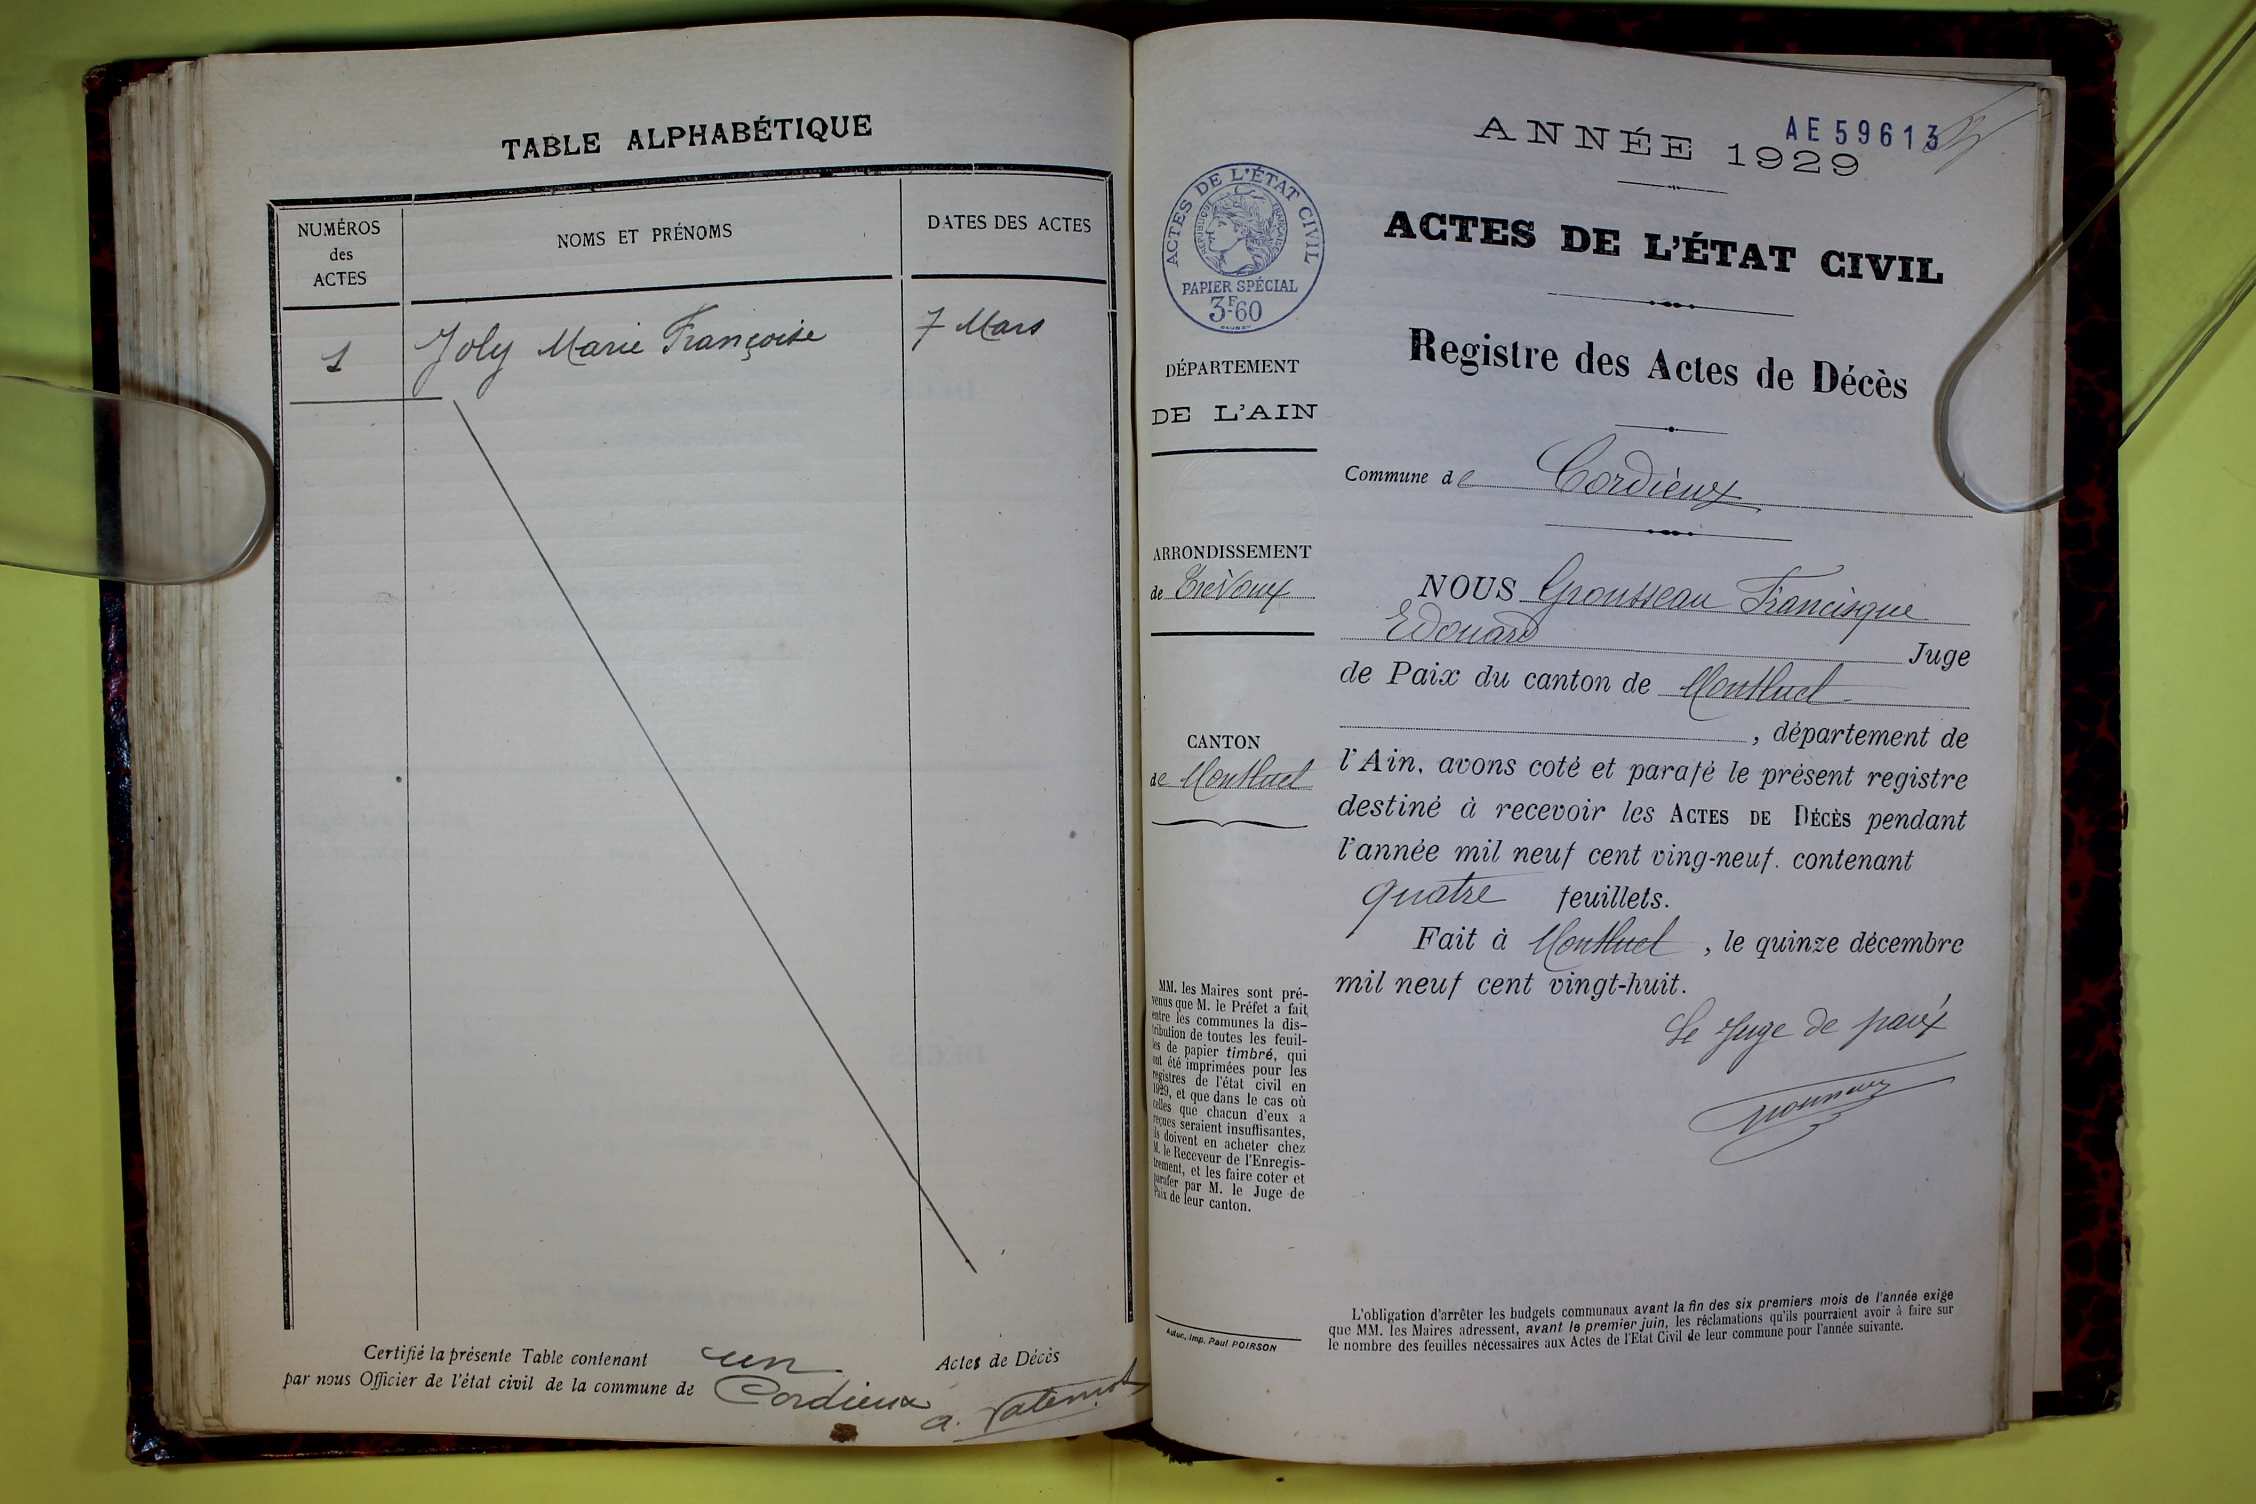 TABLE ALPHABÉTIQUE
NUMÉROS
des
ACTES
NOMS ET PRÉNOMS
DATES DES ACTES
1 Joly Marie Françoise 7 Mars
Certifié la présente Table contenant un Actes de Décès
par nous Officier de l'état civil de la commune de Cordieux
AE 59613
ANNÉE 1929
ACTES DE L'ÉTAT CIVIL
RÉPUBLIQUE FRANÇAISE
PAPIER SPÉCIAL
3F60
ACTES DE L'ÉTAT CIVIL
Registre des Actes de Décès
DÉPARTEMENT
DE L'AIN
Commune de Cordieux
ARRONDISSEMENT
de Trévoux
CANTON
de Montluel
NOUS Grousseau Francisque
Edouard
Juge
de Paix du canton de Montluel
, département de
l'Ain, avons coté et parafé le présent registre
destiné à recevoir les ACTES DE DÉCÈS pendant
l'année mil neuf cent ving-neuf. contenant
quatre feuillets.
Fait à Montluel, le quinze décembre
mil neuf cent vingt-huit.
Le Juge de paix
MM. les Maires sont pré-
venus que M. le Préfet a fait
entre les communes la dis-
tribution de toutes les feuil-
les de papier timbré, qui
ont été imprimées pour les
registres de l'état civil en
1929, et que dans le cas où
celles que chacun d'eux a
reçues seraient insuffisantes,
ils doivent en acheter chez
M. le Receveur de l'Enregis-
trement, et les faire coter et
parafer par M. le Juge de
Paix de leur canton.
Autuc., Imp. Paul POIRSON
L'obligation d'arrêter les budgets communaux avant la fin des six premiers mois de l'année exige
que MM. les Maires adressent, avant le premier juin, les réclamations qu'ils pourraient avoir à faire sur
le nombre des feuilles nécessaires aux Actes de l'Etat Civil de leur commune pour l'année suivante.